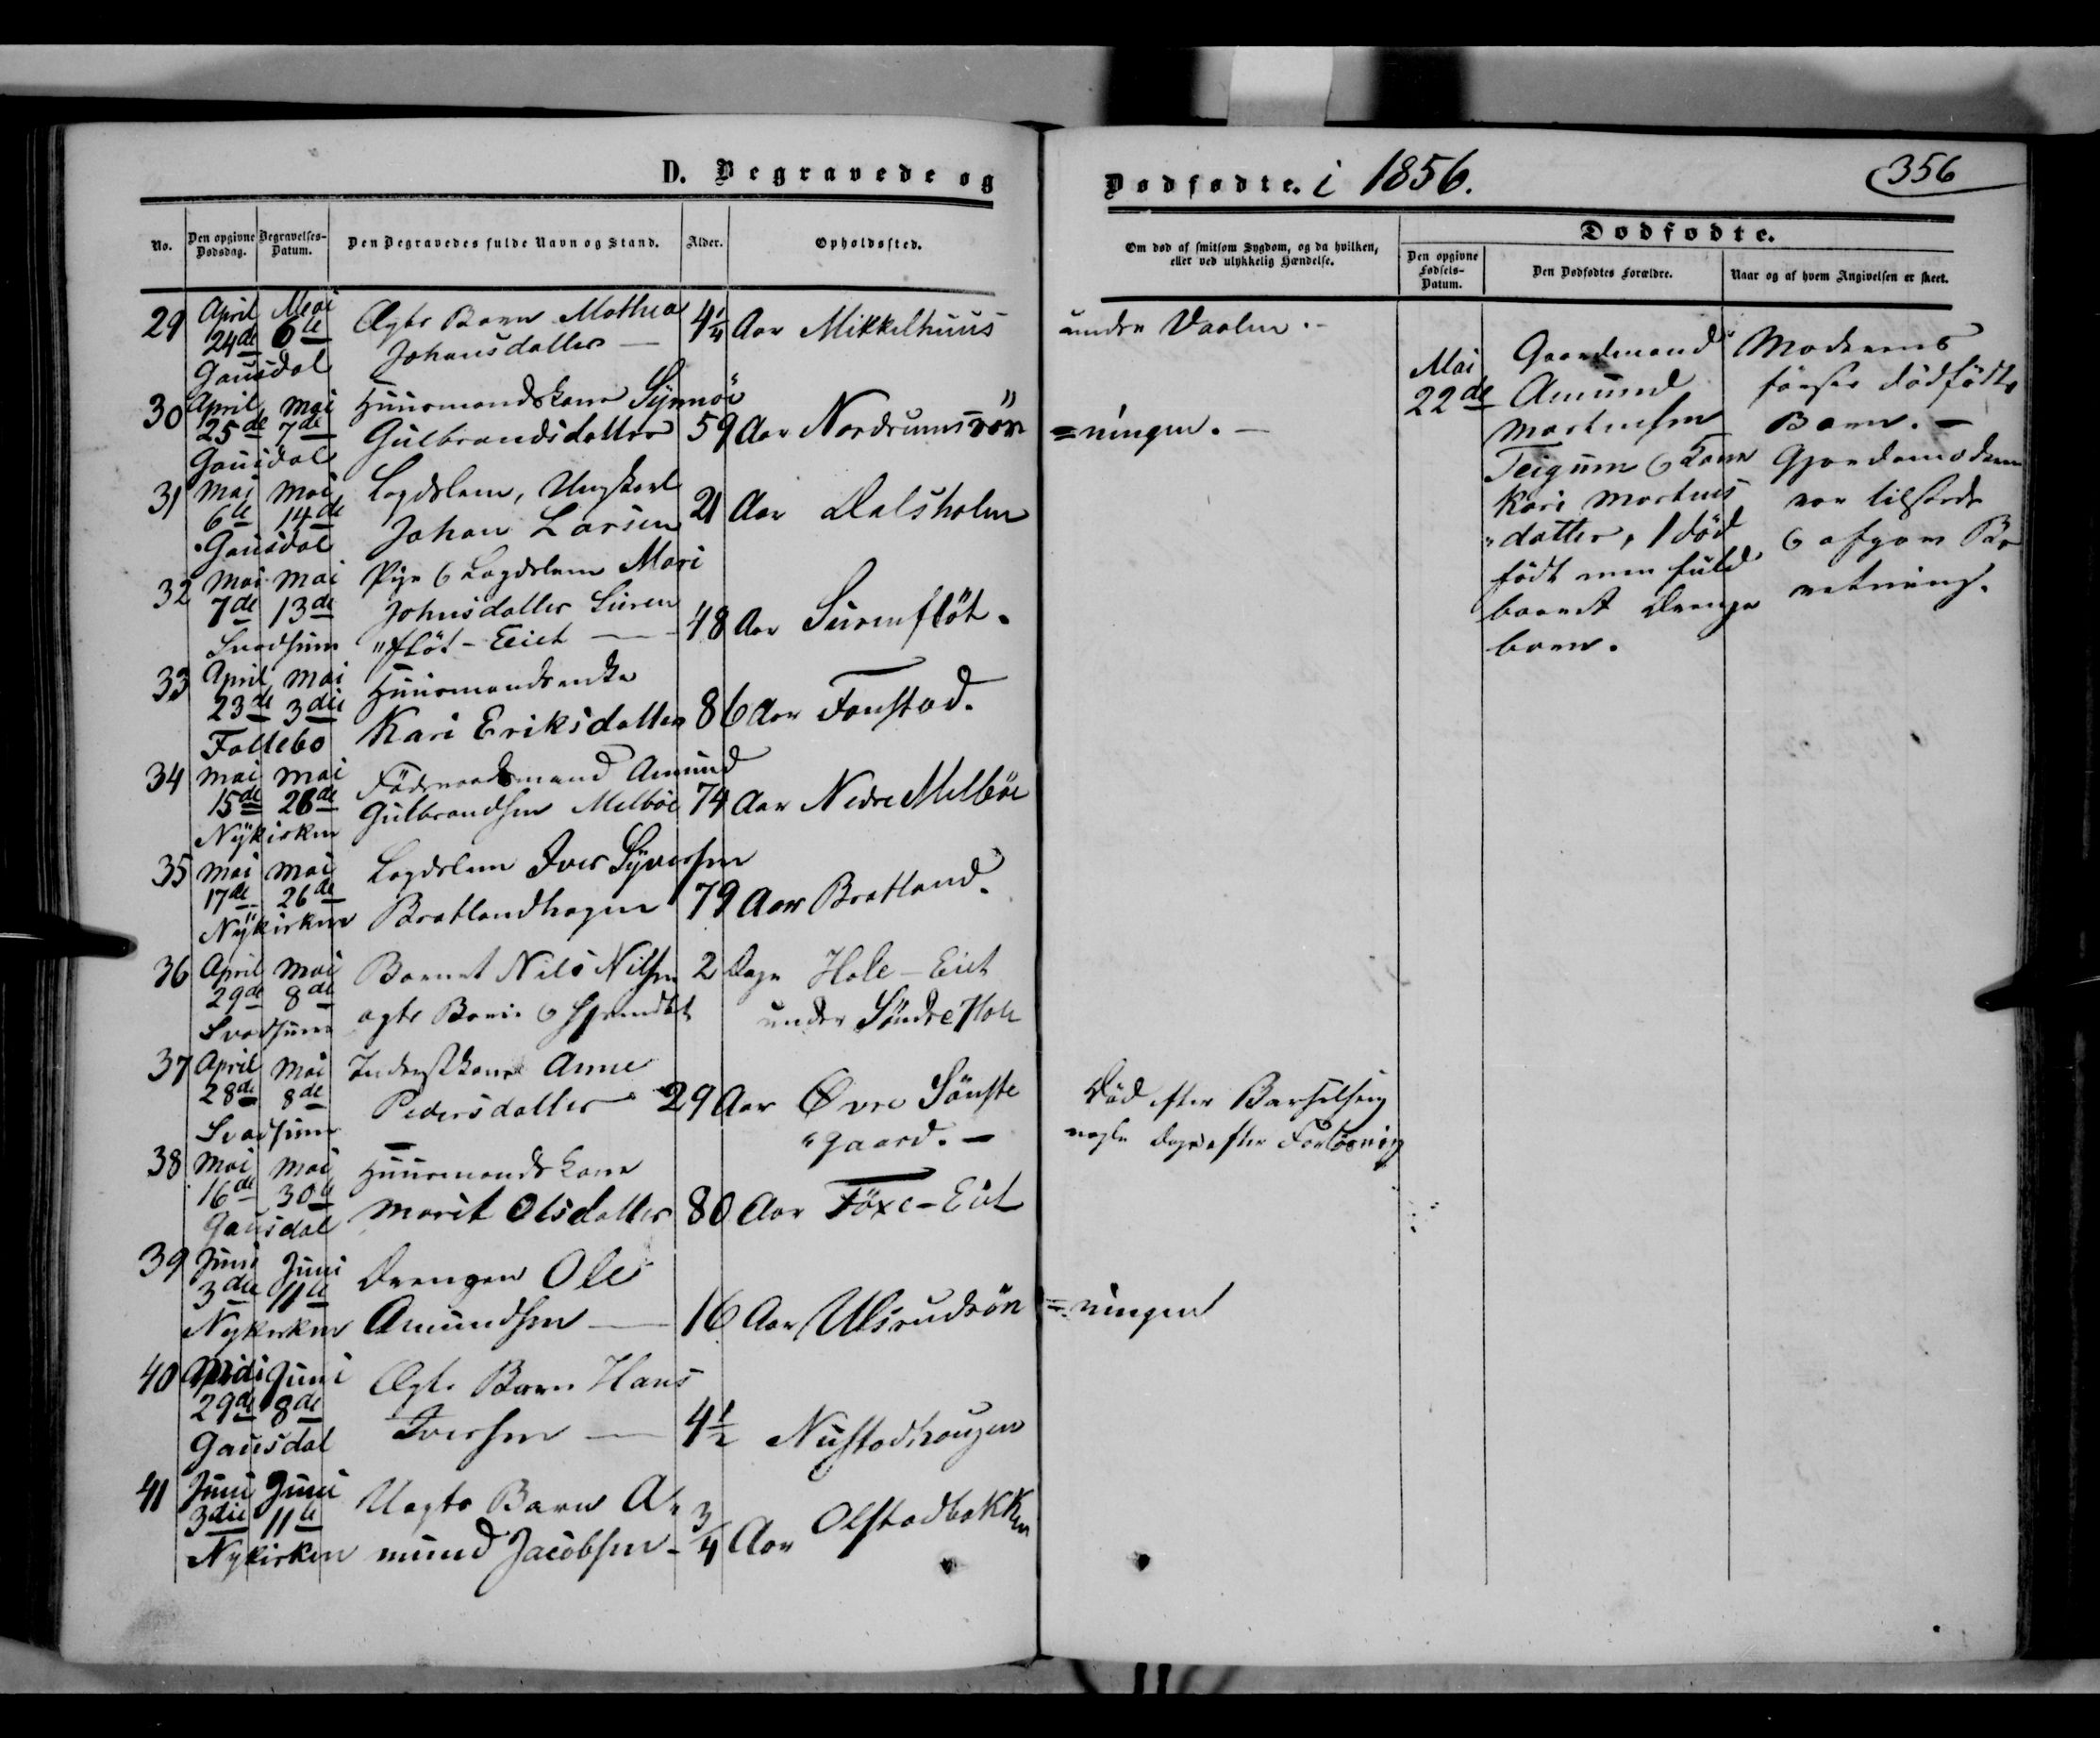 D. Begravede og
Dødfødte. i 1856.
356
No.
Den opgivne Dødsdag.
Begravelses-Datum.
Den Begravedes fulde Navn og Stand.
Alder.
Opholdssted.
Om død af smitsom Sygdom, og da hvilken, eller ved ulykkelig Hændelse.
Dødfødte.
Den opgivne Fødsels-Datum.
Den Dødfødtes Forældre.
Naar og af hvem Angivelsen er skeet.
29 April Mai Ægte Barn Mathea 4 1/4 Aar Mikkelhuus under Daalen.-
24de 6te Johansdatter —
Gausdal
30 April Mai Huusmandskone Synnöi
25de 7de Gulbrandsdatter 59 Aar Nordrumsrön =ningen. —
Gausdal
31 Mai Mai Lægdslem, Ungkarl
6te 14de Johan Larsen 21 Aar Dalsholen
Gausdal
32 Mai Mai Pige & Lægdslem Mari
7de 13de Johnsdatter Suren 48 Aar Surenflöt.
Svadsum "flöt-Eiet —
33 April Mai Huusmandsenke
23de 3die Kari Eriksdatter 86 Aar Fonstad.
Follebo
34 Mai Mai Föderaadsmand Amund
15de 28de Gulbrandsen Melböe 74 Aar Nedre Melböe
Nykirken
35 Mai Mai Lægdslem Iver Syversen
17de 26de Bratlandhagen 79 Aar Bratland.
Nykirken
36 April Mai Barnet Nils Nilsen 2 Dage Hole-Eiet
29de 8de ægte Barn & hjemdöbt under Söndre Hole
Svadsum
37 April Mai Inderstkone Anne
28de 8de Pedersdatter 29 Aar Øvre Sönste
Svadsum "gaard. —
Död efter Barselseng
nogle Dage efter Forlösning
38 Mai Mai Huusmandskone
16de 30te Marit Olsdatter 80 Aar Föxe-Eiet
Gausdal
39 Juni Juni Drengen Ole
3die 11te Amundsen — 16 Aar Ulsrudrön =ningen
Nykirken
40 Juni Ægte Barn Hans
29de 8de Iversen — 4 1/2 Nustadhaugen
Gausdal
41 Juni Juni Uægte Barn A"
3die 11te mund Jacobsen - 3/4 Aar Olstadbakken
Nykirken
Mai
22de
Gaardmand
Amund
Mortensen
Teigum & Kone
Kari Mortens
"datter, 1 död
födt men fuld
baaret Drenge
barn.
Moderens
förste dödfödte
Barn. —
Gjordemoderen
var tilstede
& afgav Be
retning.